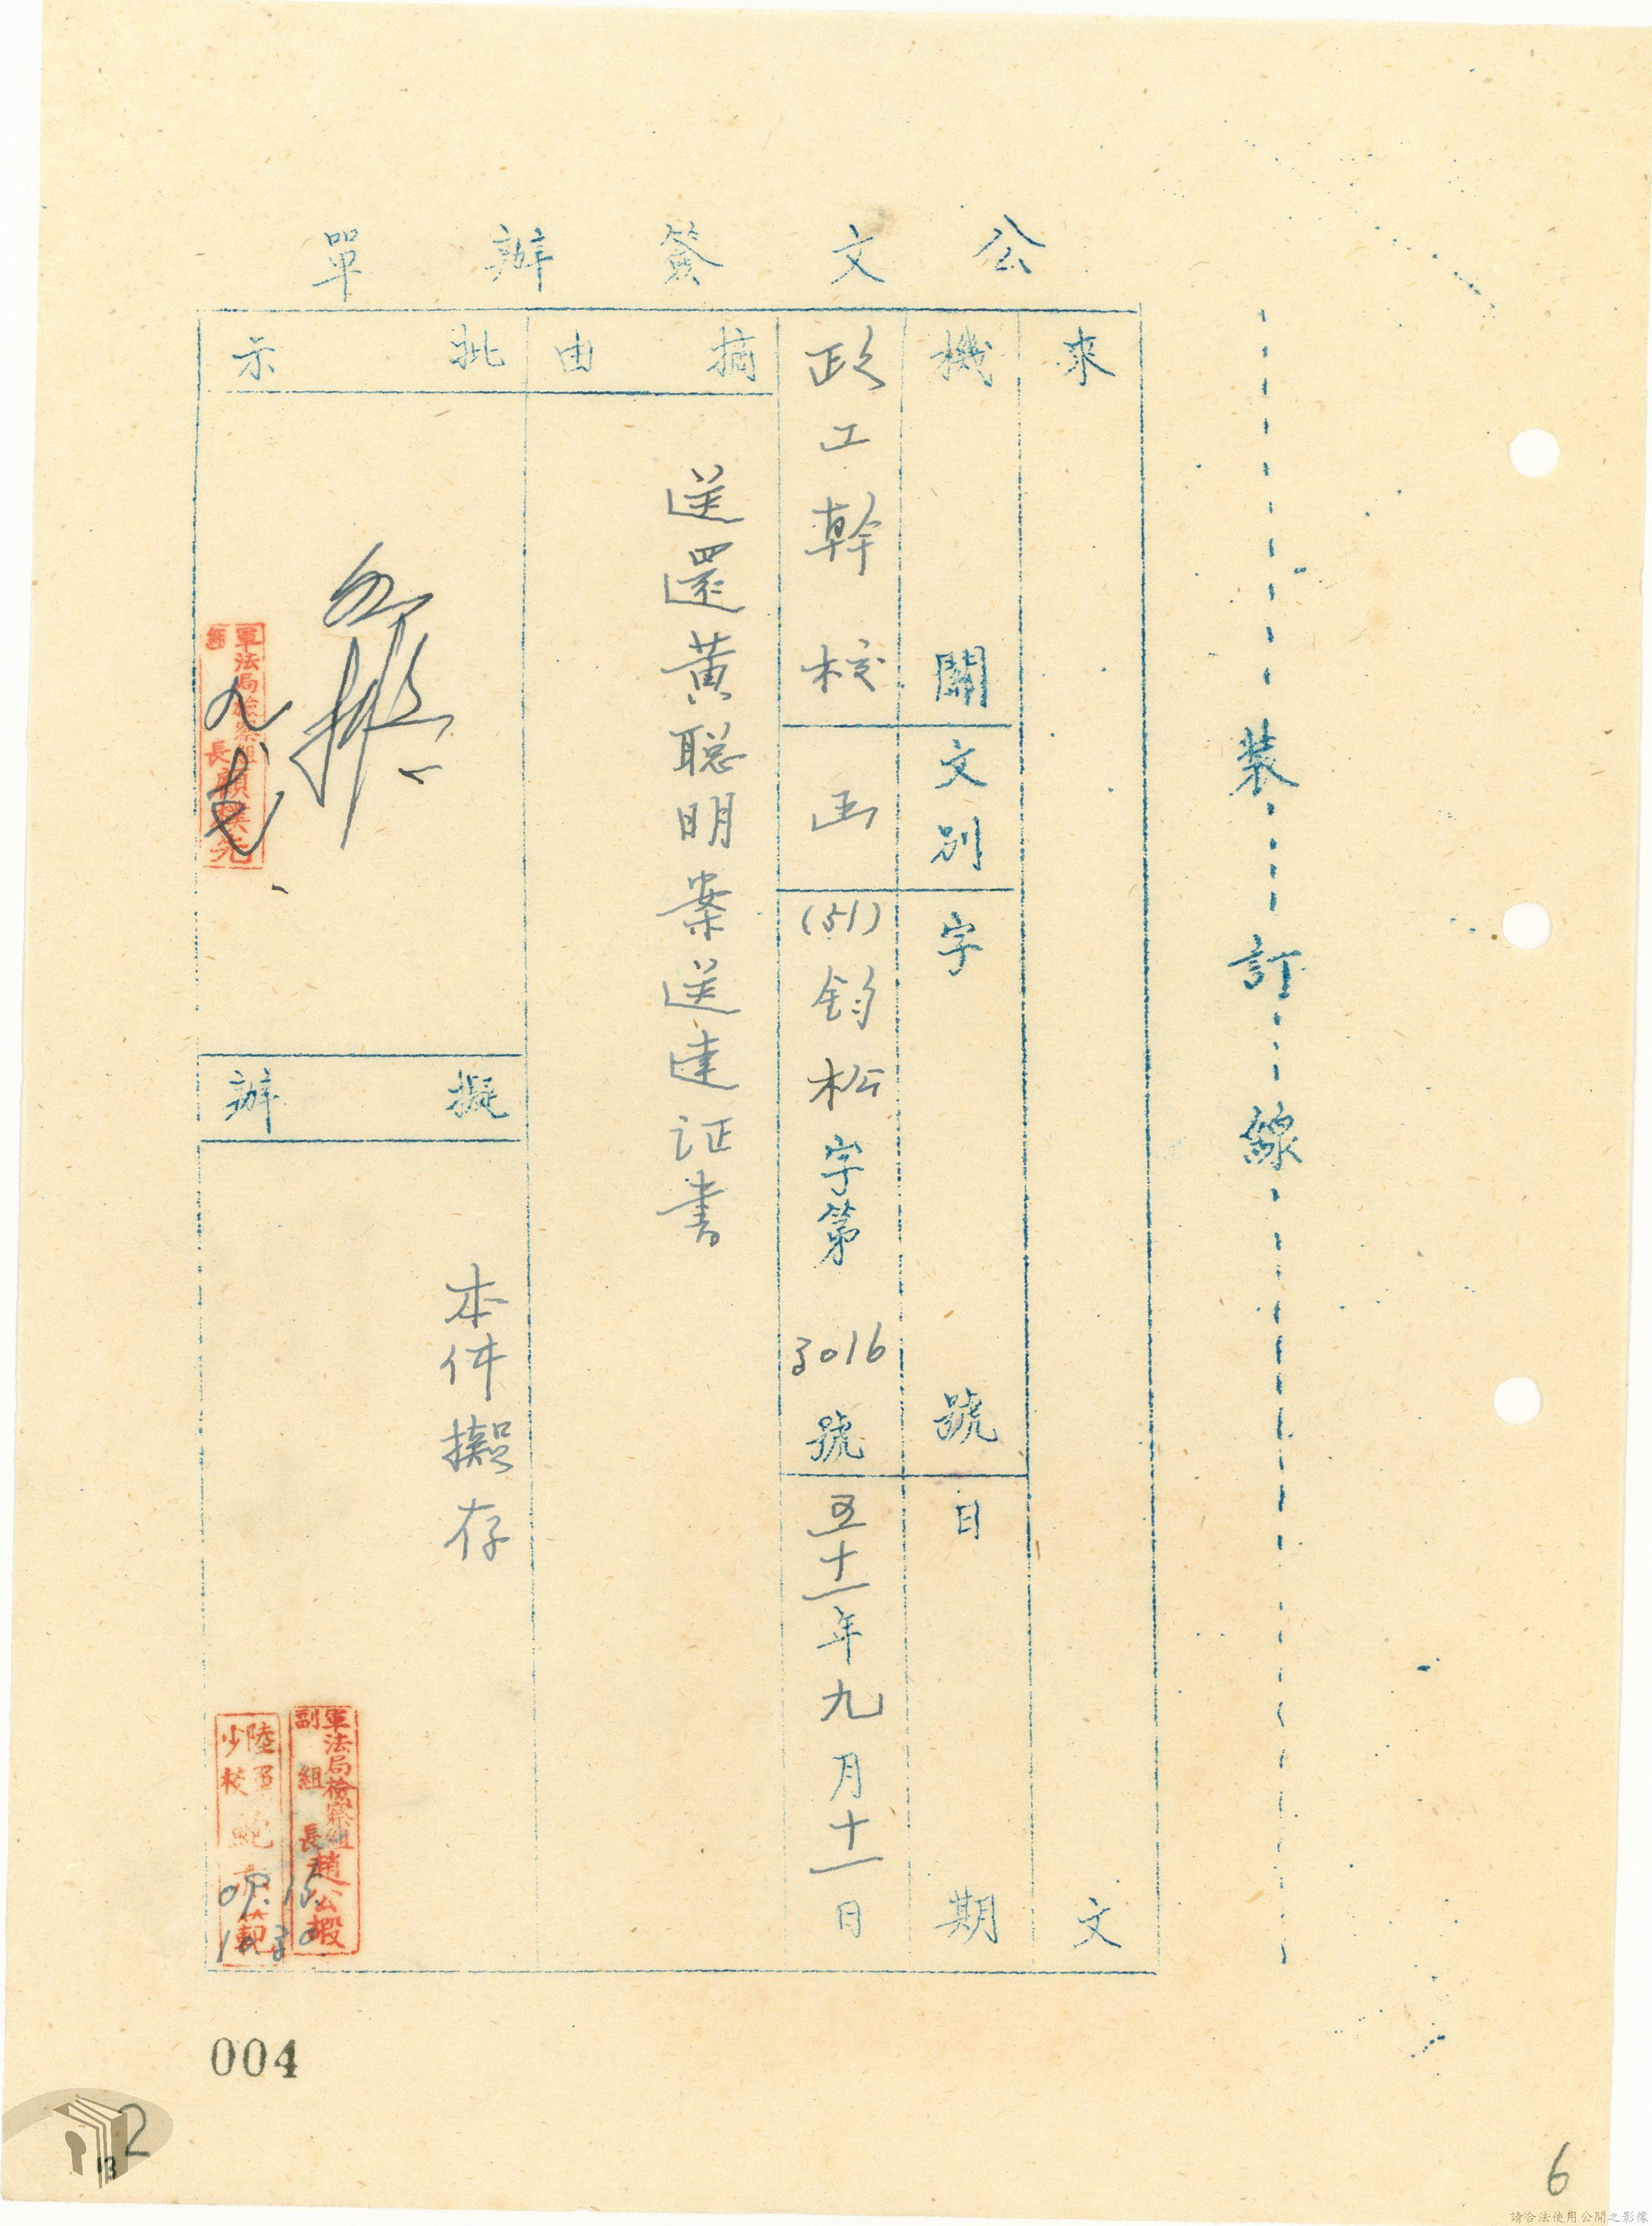 公文簽辦單
裝訂線
來文
機關
文別
字號
日期
政工幹校
函
(51)鈞松字第3016號
五十一年九月十一日
摘由
送還黃聰明案送達证書
批示
軍法局檢察組
組長
擬辦
本件擬存
軍法局檢察組
副組長趙公嘏
陸軍
少校
鮑
09.15
1030
004
2
13
6
請合法使用公開之影像